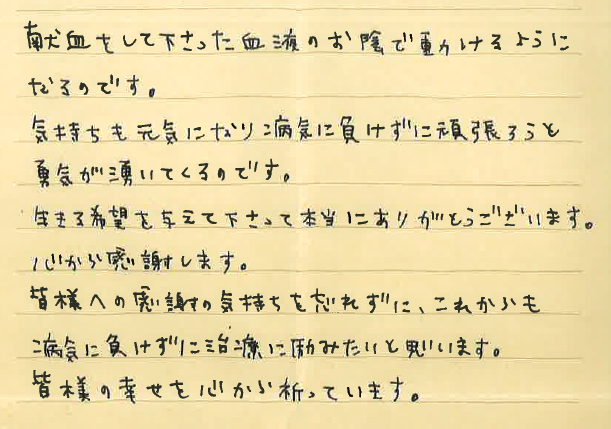 献血をして下さった血液のお陰で動けるように
なるのです。
気持ちも元気になり病気に負けずに頑張ろうと
勇気が湧いてくるのです。
生きる希望を与えて下さって本当にありがとうございます。
心から感謝します。
皆様への感謝の気持ちを忘れずに、これからも
病気に負けずに治療に励みたいと思います。
皆様の幸せを心から祈っています。